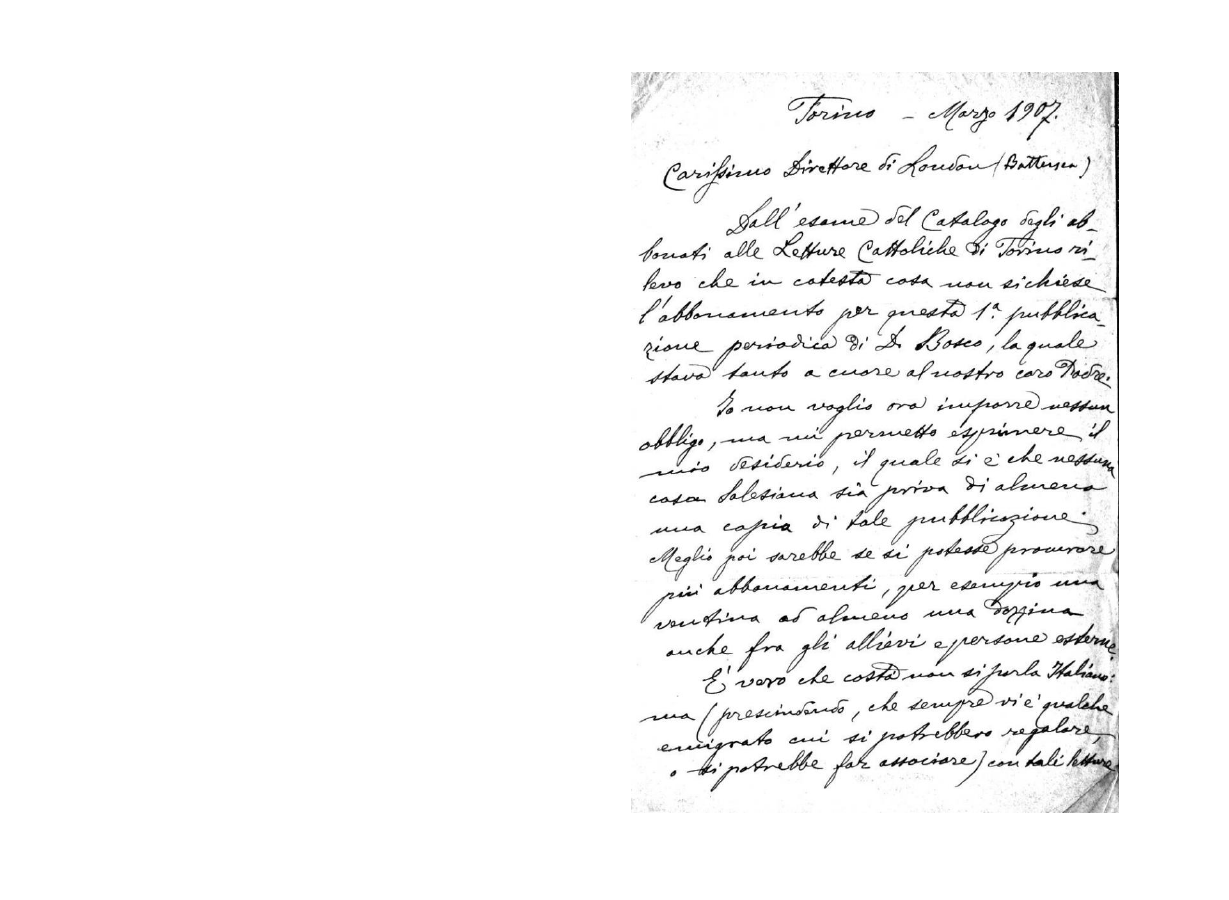 Torino – Marzo 1907.
Carissimo Direttore di London (Battersea)
Dall'esame del Catalogo degli ab-
bonati alle Letture Cattoliche di Torino ri-
levo che in cotesta casa non si chiese
l'abbonamento per questa 1ª pubblica-
zione periodica di D. Bosco, la quale
stava tanto a cuore al nostro caro Padre.
Io non voglio ora imporre nessun
obbligo, ma mi permetto esprimere il
mio desiderio, il quale si è che nessuna
casa Salesiana sia priva di almeno
una copia di tale pubblicazione.
Meglio poi sarebbe se si potesse procurare
più abbonamenti, per esempio una
ventina od almeno una dozzina
anche fra gli allievi e persone esterne.
E' vero che costà non si parla Italiano:
ma (prescindendo, che sempre vi è qualche
emigrato cui si potrebbero regalare,
o si potrebbe far associare) con tali letture